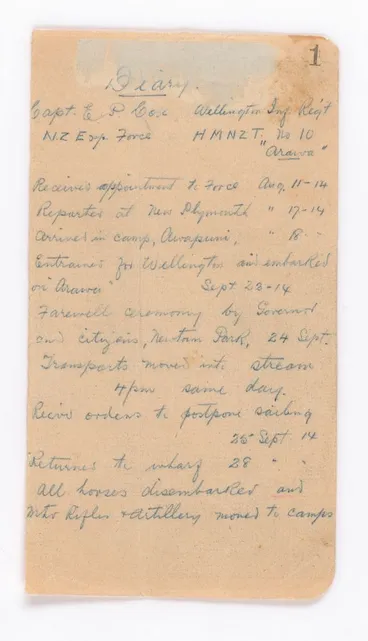 1
Diary.
Capt. E P Cox Wellington Inf. Regt
N.Z Exp. Force H M N Z T. No 10
"Arawa"
Received appointment to Force Aug. 11-14
Reported at New Plymouth " 17-14
Arrived in camp, Awapuni, " 18 "
Entrained for Wellington and embarked
on "Arawa" Sept 23-14
Farewell ceremony by Governor
and citizens, Newtown Park, 24 Sept.
Transports moved into stream
4pm same day.
Receive orders to postpone sailing
25 Sept 14
Returned to wharf 28 " "
All horses disembarked and
Mtd Rifles & Artillery moved to camps